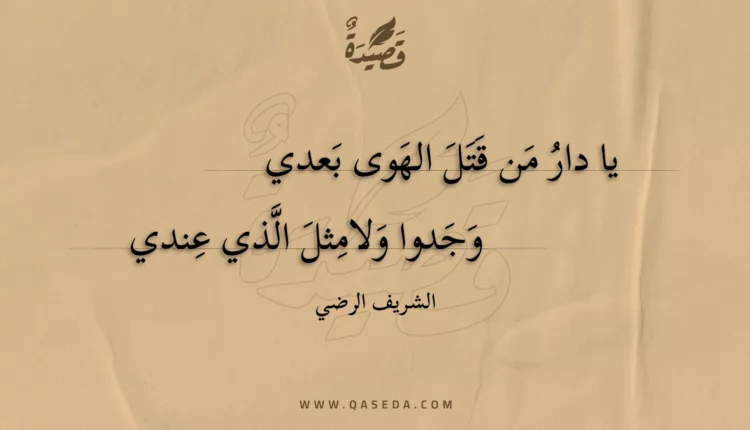 قَصِيدَةٌ
يا دارُ مَن قَتَلَ الهَوى بَعدي
وَجَدوا وَلامِثلَ الَّذي عِندي
الشريف الرضي
WWW.QASEDA.COM